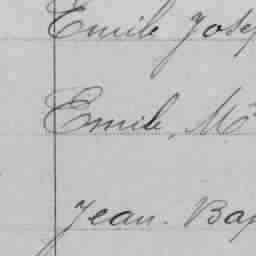 Emile Josep
Emile, Mc
Jean-Bap